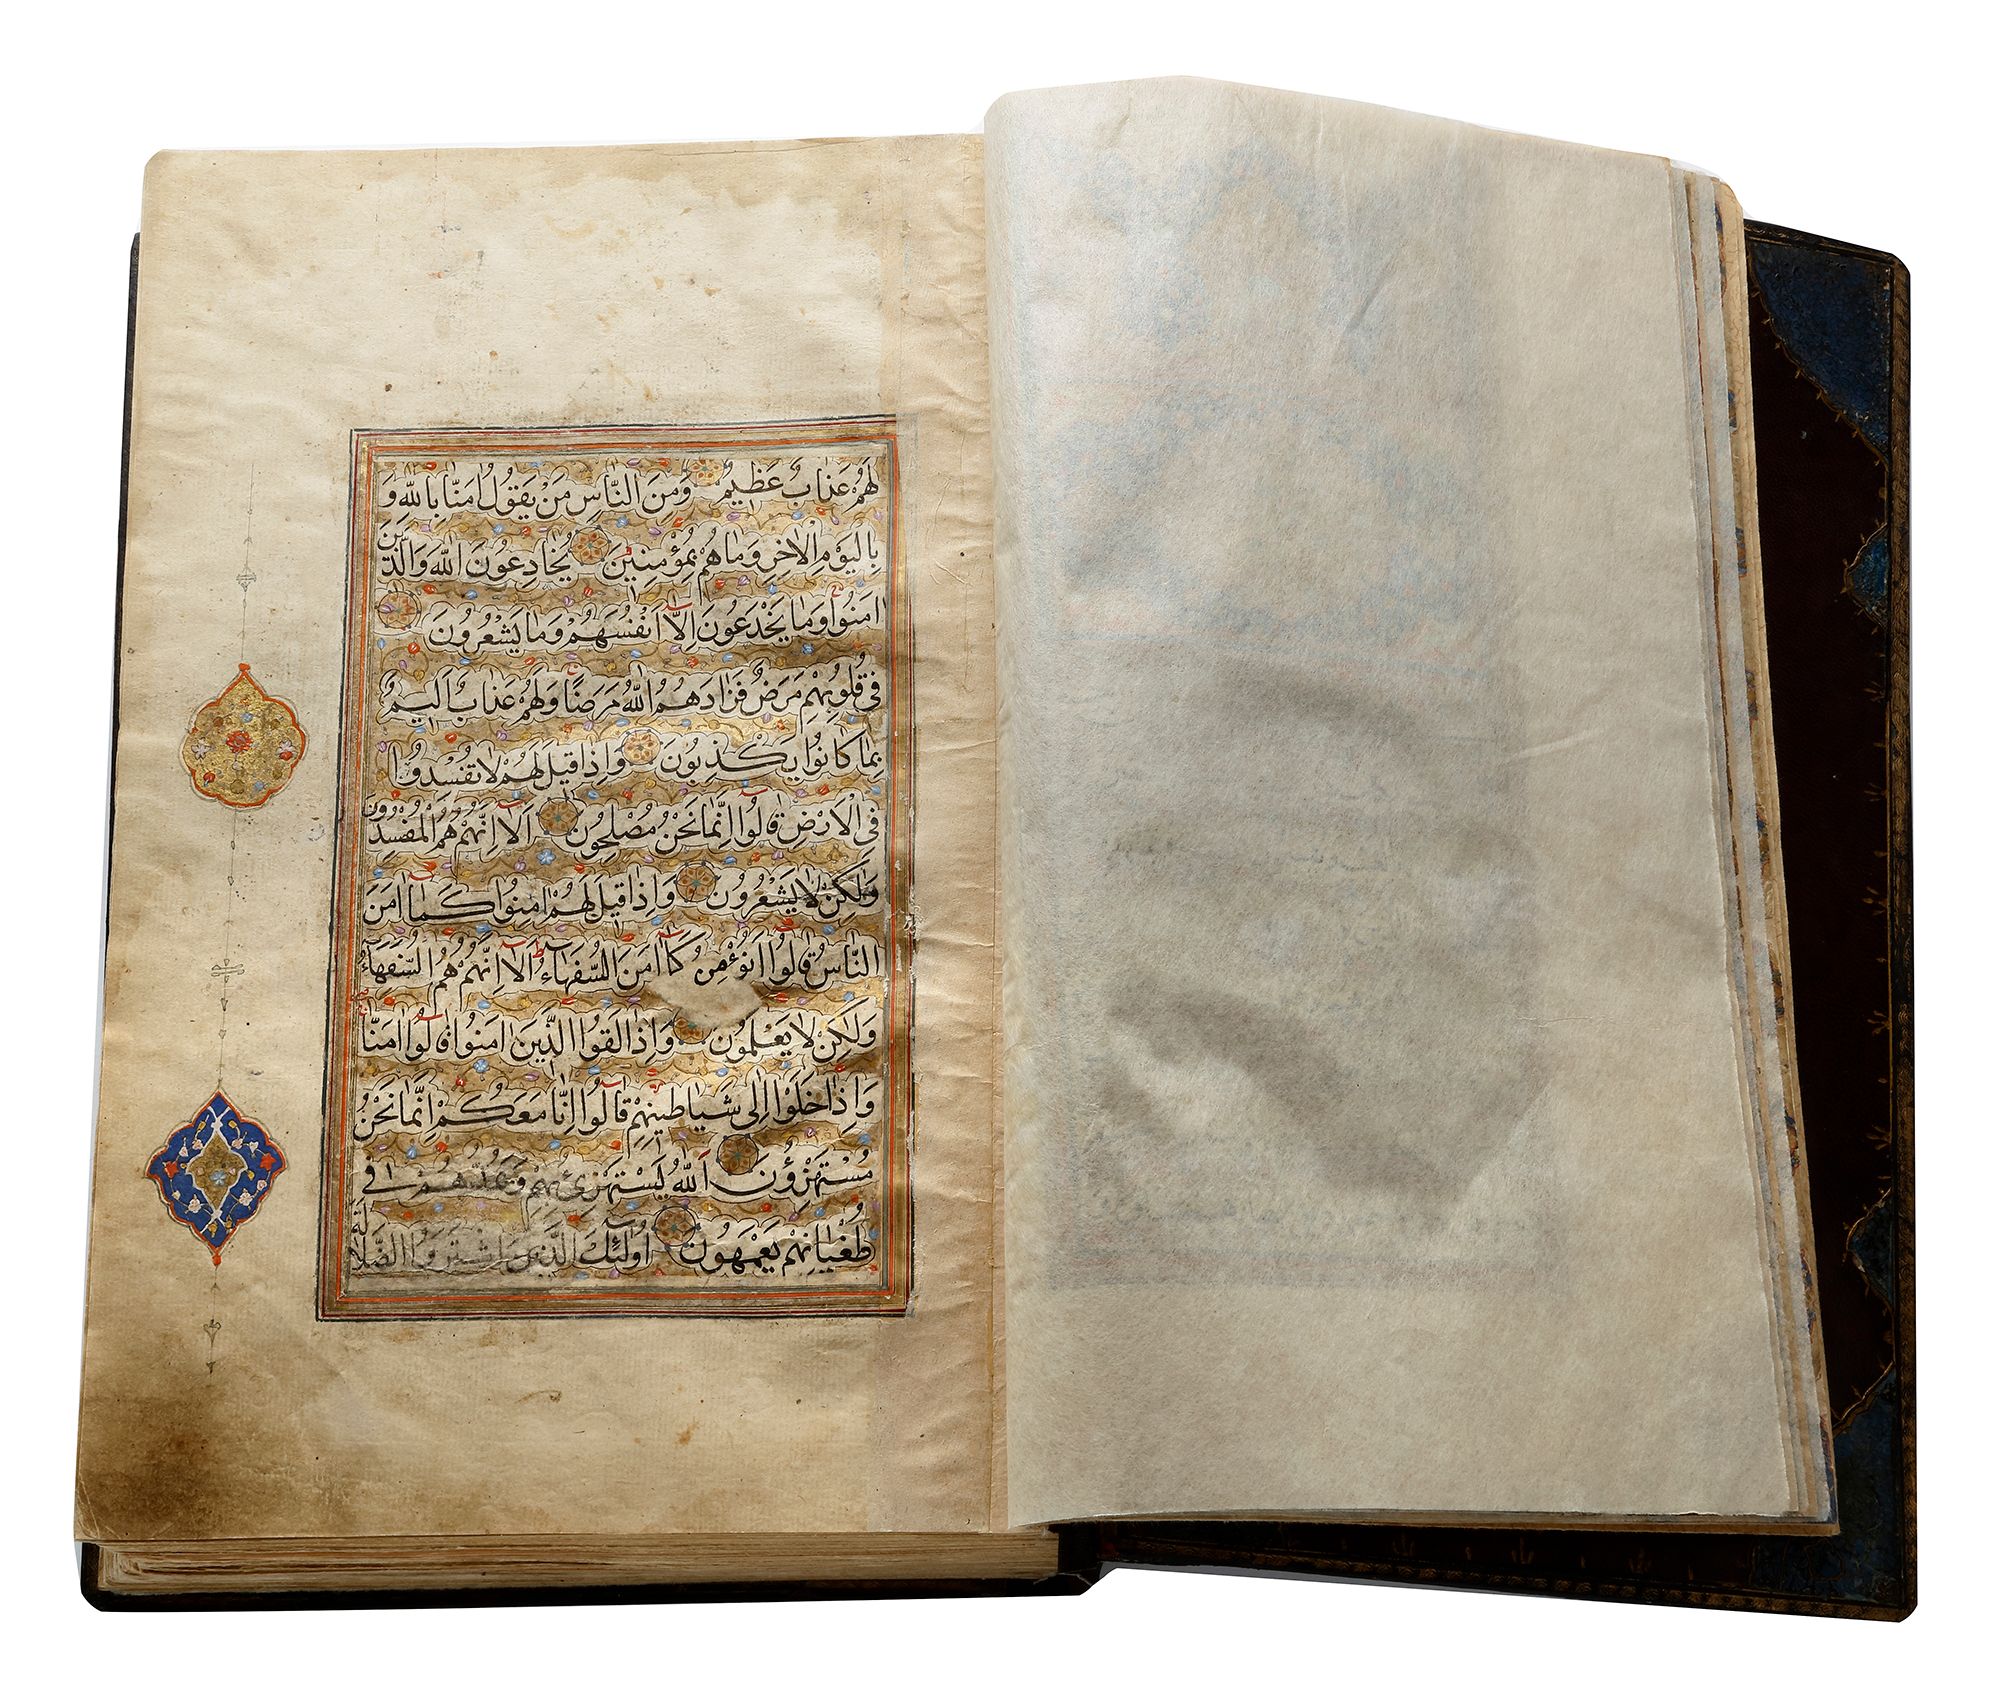 لَهُمْ عَذَابٌ عَظِيمٌ وَمِنَ النَّاسِ مَنْ يَقُولُ اٰمَنَّا بِاللّٰهِ وَ
بِالْيَوْمِ الْاٰخِرِ وَمَا هُمْ بِمُؤْمِنِينَ يُخَادِعُونَ اللّٰهَ وَالَّذِينَ
اٰمَنُوا وَمَا يَخْدَعُونَ اِلَّا اَنْفُسَهُمْ وَمَا يَشْعُرُونَ
فِى قُلُوبِهِمْ مَرَضٌ فَزَادَهُمُ اللّٰهُ مَرَضًا وَلَهُمْ عَذَابٌ اَلِيمٌ
بِمَا كَانُوا يَكْذِبُونَ وَاِذَا قِيلَ لَهُمْ لَا تُفْسِدُوا
فِى الْاَرْضِ قَالُوا اِنَّمَا نَحْنُ مُصْلِحُونَ اَلَا اِنَّهُمْ هُمُ الْمُفْسِدُونَ
وَلٰكِنْ لَا يَشْعُرُونَ وَاِذَا قِيلَ لَهُمْ اٰمِنُوا كَمَا اٰمَنَ
النَّاسُ قَالُوا اَنُؤْمِنُ كَمَا اٰمَنَ السُّفَهَاءُ اَلَا اِنَّهُمْ هُمُ السُّفَهَاءُ
وَلٰكِنْ لَا يَعْلَمُونَ وَاِذَا لَقُوا الَّذِينَ اٰمَنُوا قَالُوا اٰمَنَّا
وَاِذَا خَلَوْا اِلٰى شَيَاطِينِهِمْ قَالُوا اِنَّا مَعَكُمْ اِنَّمَا نَحْنُ
مُسْتَهْزِؤُنَ اَللّٰهُ يَسْتَهْزِئُ بِهِمْ وَيَمُدُّهُمْ فِى
طُغْيَانِهِمْ يَعْمَهُونَ اُولٰئِكَ الَّذِينَ اشْتَرَوُا الضَّلَالَةَ